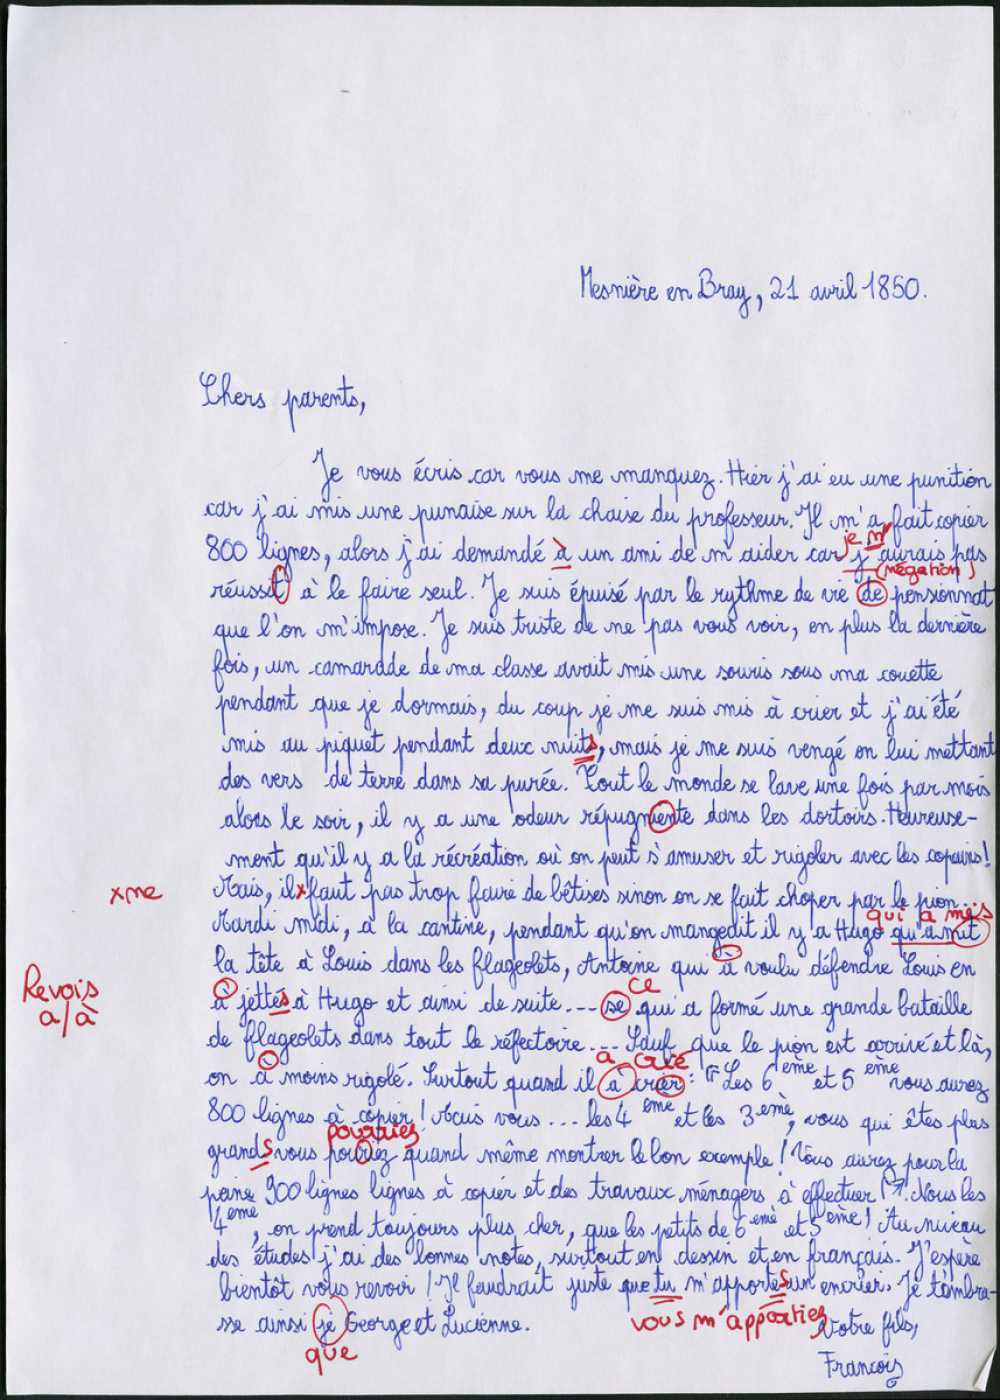 Mesnière en Bray, 21 avril 1850.
Chers parents,
Je vous écris car vous me manquez. Hier j'ai eu une punition
car j'ai mis une punaise sur la chaise du professeur. Il m'a fait copier
je n'
800 lignes, alors j'ai demandé à un ami de m'aider car j'aurais pas
(négation)
réussit à le faire seul. Je suis épuisé par le rythme de vie de pensionnat
que l'on m'impose. Je suis triste de ne pas vous voir, en plus la dernière
fois, un camaradde de ma classe avait mis une souris sous ma couette
pendant que je dormais, du coup je me suis mis à crier et j'ai été
mis au piquet pendant deux nuits, mais je me suis vengé en lui mettant
des vers de terre dans sa purée. Tout le monde se lave une fois par mois
alors le soir, il y a une odeur répugniente dans les dortoirs. Heureuse-
ment qu'il y a la récréation où on peut s'amuser et rigoler avec les copains!
x ne
Mais, il x faut pas trop faire de bêtises sinon on se fait choper par le pion...
qui a mis
Mardi midi, à la cantine, pendant qu'on mangedit il y a Hugo qu'a mit
la tête à Louis dans les flageolets, Antoine qui à voulu défendre Louis en
Revois
a/à
ce
à jettés à Hugo et ainsi de suite... se qui a formé une grande bataille
de flageolets dans tout le réfectoire... Sauf que le pion est arrivé et là,
a crié
on à moins rigolé. Surtout quand il à crier: "Les 6ème et 5ème vous aurez
800 lignes à copier! Mais vous... les 4ème et les 3ème, vous qui êtes plus
pourriez
grands vous pouriez quand même montrer le bon exemple! Vous aurez pour la
peine 900 lignes lignes à copier et des travaux ménagers à effectuer!". Nous les
4ème, on prend toujours plus cher, que les petits de 6ème et 5ème! Au niveau
des études j'ai des bonnes notes, surtout en dessin et en français. J'espère
bientôt vous revoir! Il faudrait juste que tu m'apportes un encrier. Je t'embra-
vous m'apportiez
sse ainsi je George et Lucienne.
que
Votre fils,
François